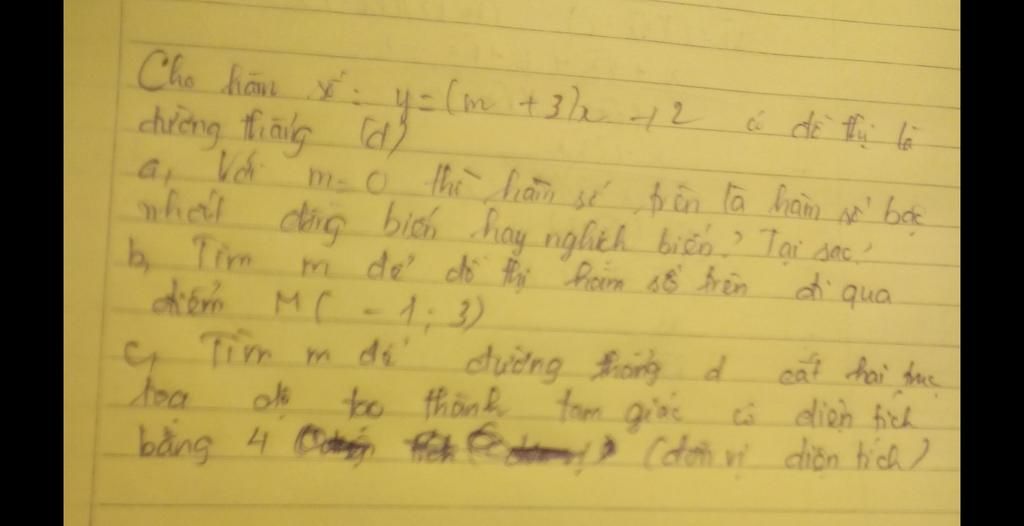 Cho hàm số: y = (m + 3)x + 2 có đồ thị là
đường thẳng (d)
a, Với m = 0 thì hàm số trên là hàm số bậc
nhất đồng biến hay nghịch biến? Tại sao?
b, Tìm m để đồ thị hàm số trên đi qua
điểm M( - 1 ; 3)
c, Tìm m để đường thẳng d cắt hai trục
tọa độ tạo thành tam giác có diện tích
bằng 4 (đơn vị diện tích)